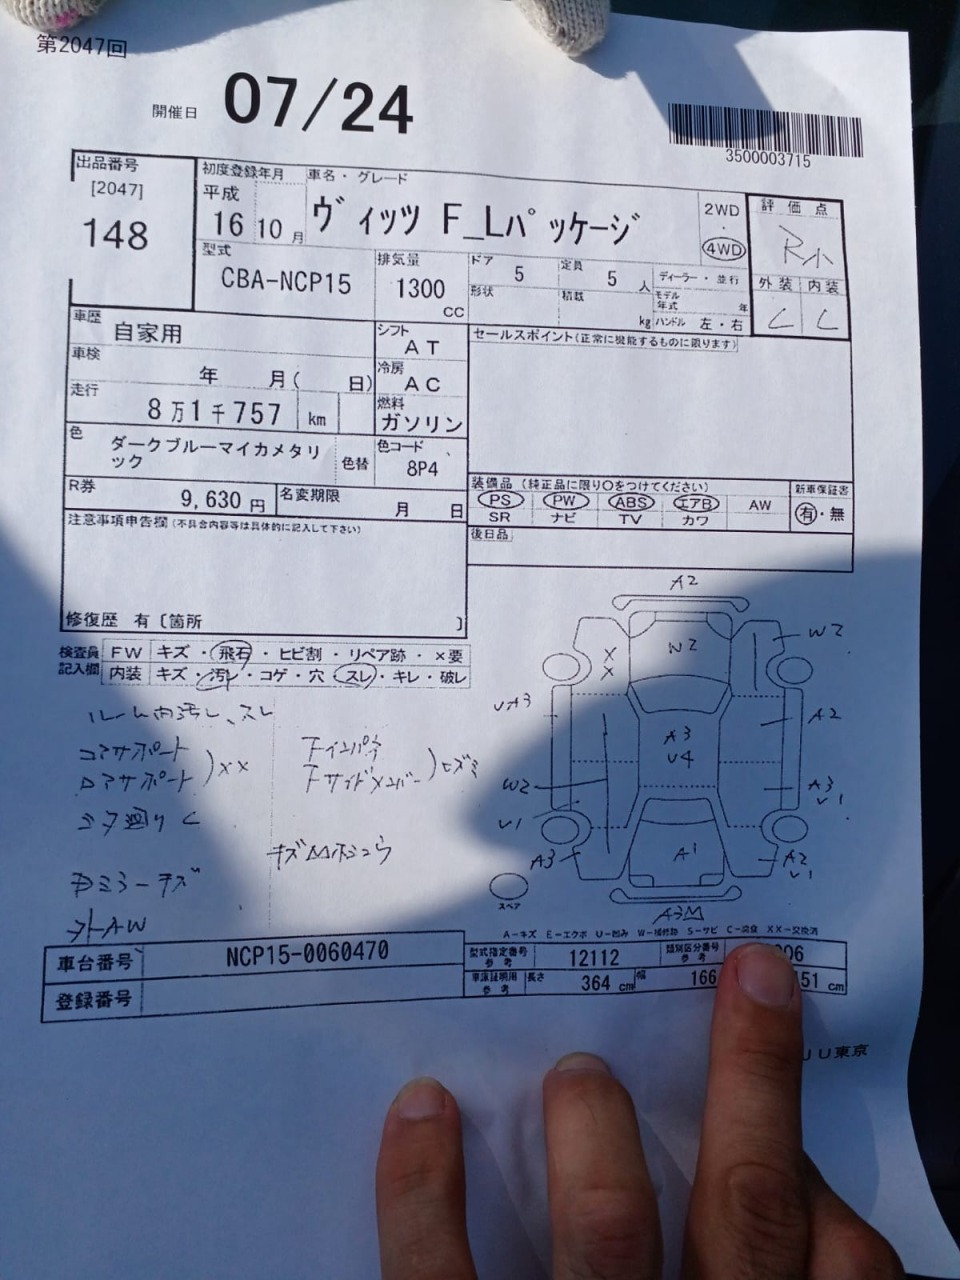 第2047回
開催日 07/24
3500003715
出品番号 [2047] 148
初度登録年月 平成 16 10月
車名・グレード ヴィッツ F_Lパッケージ
2WD・4WD
評価点 R小
外装 C 内装 C
型式 CBA-NCP15
排気量 1300 CC
ドア 5 定員 5 人 ディーラー・並行
形状 積載 kg モデル年式 年
ハンドル 左・右
車歴 自家用
シフト AT
セールスポイント(正常に機能するものに限ります)
車検 年 月( 日)
冷房 AC
走行 8万1千757 km
燃料 ガソリン
色 ダークブルーマイカメタリック 色替
色コード 8P4
R券 9,630円 名変期限 月 日
装備品(純正品に限り○をつけてください) 新車保証書
PS PW ABS エアB AW 有・無
SR ナビ TV カワ
後日品
注意事項申告欄(不具合内容等は具体的に記入して下さい)
修復歴 有〔箇所 〕
検査員記入欄
FW キズ・飛石・ヒビ割・リペア跡・×要
内装 キズ・汚レ・コゲ・穴・スレ・キレ・破レ
ルーム内汚レ、スレ
コアサポート
ロアサポート )××
コア廻り C
下インパネ
下サイドメンバー
キズ
ミラーキズ
外AW
A2
W2
W2
××
UA3
A2
A3
U4
W2
A3
U1
U1
A3
A1
A2
U1
スペア
A-キズ E-エクボ U-凹み W-補修跡 S-サビ C-腐食 XX-交換済
車台番号 NCP15-0060470
登録番号
型式指定番号 参考 12112 類別区分番号 参考 06
車庫証明用 参考 長さ 364 cm 幅 166 51 cm
JU東京